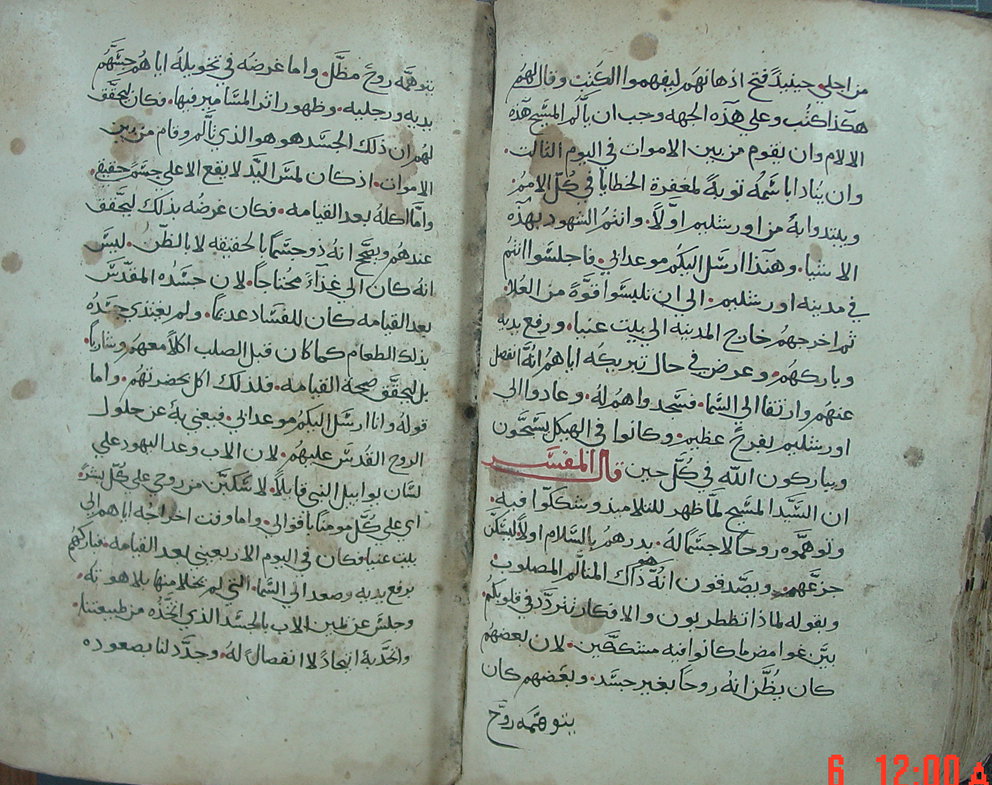 من اجلي. حينيذ فتح اذهانهم ليفهموا الكتب وقال لهم
هكذا كتب وعلي هذه الجهه وجب ان يالم المسيح هذه
الالام وان يقوم من بين الاموات في اليوم الثالث.
وان ينادا باسمه توبة لمغفرة الخطايا في كل الامم.
ويبتدوا به من اورشليم اولا. وانتم الشهود بهذه
الاشيا. وهنذا ارسل اليكم موعد ابي. فاجلسوا انتم
في مدينه اورشليم. الي ان تلبسوا قوة من العلا.
ثم اخرجهم خارج المدينه الي بيت عنيا. ورفع يديه
وباركهم. وعرض في حال تبريكه اياهم انه انفصل
عنهم وارتقا الي السما. فسجدوا هم له. وعادوا الي
اورشليم بفرح عظيم. وكانوا في الهيكل يسبحون
ويباركون الله في كل حين قال المفسر
ان السيد المسيح لما ظهر للتلاميذ وشككوا فيه.
وتوهموه روحا لا جسما له. بدرهم بالسلام اولا ليسكن
جزعهم. ويصدقون انه هو ذاك المتالم المصلوب
وبقوله لماذا تظطربون والافكار تتردد في قلوبكم
بين غوامض ما كانوا فيه متشككين. لان بعضهم
كان يظن انه روحا بغير جسد. وبعضهم كان
يتوهمه روح
يتوهمه روح مظلل. واما غرضه في تخويله اياهم جسهم
يديه ورجليه. وظهور اثر المسامير فيها. فكان ليحقق
لهم ان ذلك الجسد هو هو الذي تالم وقام من بين
الاموات. اذ كان لمس اليد لا يقع الا علي جسم حقيقي.
واما اكله بعد القيامه. فكان غرضه بذلك ليحقق
عندهم ويصح انه ذو جسما بالحقيقه لا بالظن. ليس
انه كان الي غذاء محتاجا. لان جسده المقدس
بعد القيامه كان للفساد عديما. ولم يغتذي جسده
بذلك الطعام كما كان قبل الصلب اكلا معهم وشاربا.
بل ليحقق صحة القيامه. فلذلك اكل بحضرتهم. واما
قوله وانا ارسل اليكم موعد ابي. فيعني به عن حلول
الروح القدس عليهم. لان الاب وعد اليهود علي
لسان يواييل النبي قايلا. لاسكبن من روحي علي كل بشر.
اي علي كل مومنا باقوالي. واما وقت اخراجه اياهم الي
بيت عنيا فكان في اليوم الاربعيني بعد القيامه. فباركهم
برفع يديه وصعد الي السما. التي لم يخلا منها بلاهوته.
وجلس عن يمين الاب بالجسد الذي اتخذه من طبيعتنا.
واتحد به اتحادا لا انفصال له. وجدد لنا بصعوده
6 12:00 A